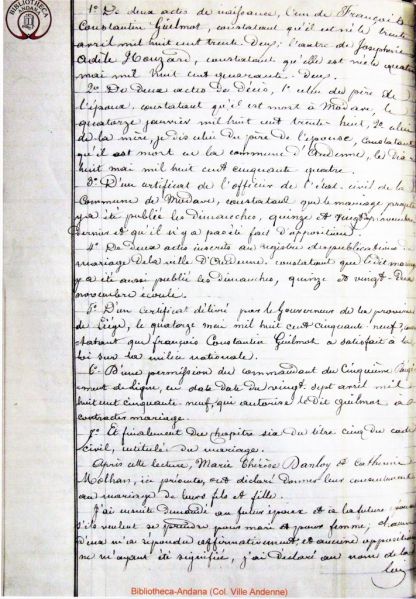 BIBLIOTHECA
ANDANA
1° De deux actes de naissance, l'un de François
Constantin Guilmot, constatant qu'il est né le trente
avril mil huit cent trente Deux. l'autre de Joséphine
Odile Houzard, constatant qu'elle est née le quatre
mai mil huit cent quarante-Deux.
2° De Deux actes de Décès, 1° celui du père De
l'époux, constatant qu'il est mort à Modave, le
quatorze janvier mil huit cent trente-huit, 2° celui
de la mère, je dis celui du père de l'épouse, constatant
qu'il est mort en la commune d'Andenne, le dix
huit mai mil huit cent cinquante quatre.
3° D'un certificat de l'officier de l'état civil de la
Commune de Modave, constatant que le mariage projeté
y a été publié les Dimanches, quinze et vingt-Deux novembre
dernier et qu'il n'y a pas été fait d'opposition.
4° De deux actes inscrits au registre des publications de
mariage de la ville d'Andenne, constatant que le dit mariage
y a été aussi publié les dimanches, quinze et vingt-Deux
novembre écoulé.
5° D'un certificat délivré par le Gouverneur de la province
de Liège, le quatorze mai mil huit cent cinquante-neuf, cons
tatant que françois Constantin Guilmot a satisfait à la
loi sur la milice nationale.
6° D'une permission du commandant du Cinquième Régi
ment de ligne, en date du vingt-sept avril mil
huit cent cinquante neuf, qui autorise le dit Guilmot à
contracter mariage.
7° Et finalement du chapitre six du titre cinq du code
civil, intitulé du mariage.
Après cette lecture, Marie Thérèse Danloy et Catherine
Mothan, ici présente, ont déclaré donner leur consentement
au mariage de leurs fils et fille.
J'ai ensuite demandé au futur époux et à la future épouse
s'ils veulent se prendre pour mari et pour femme, chacun
d'eux m'a répondu affirmativement, et aucune opposition
ne m'ayant été signifiée, j'ai déclaré au nom de la
loi
Bibliotheca-Andana (Col. Ville Andenne)